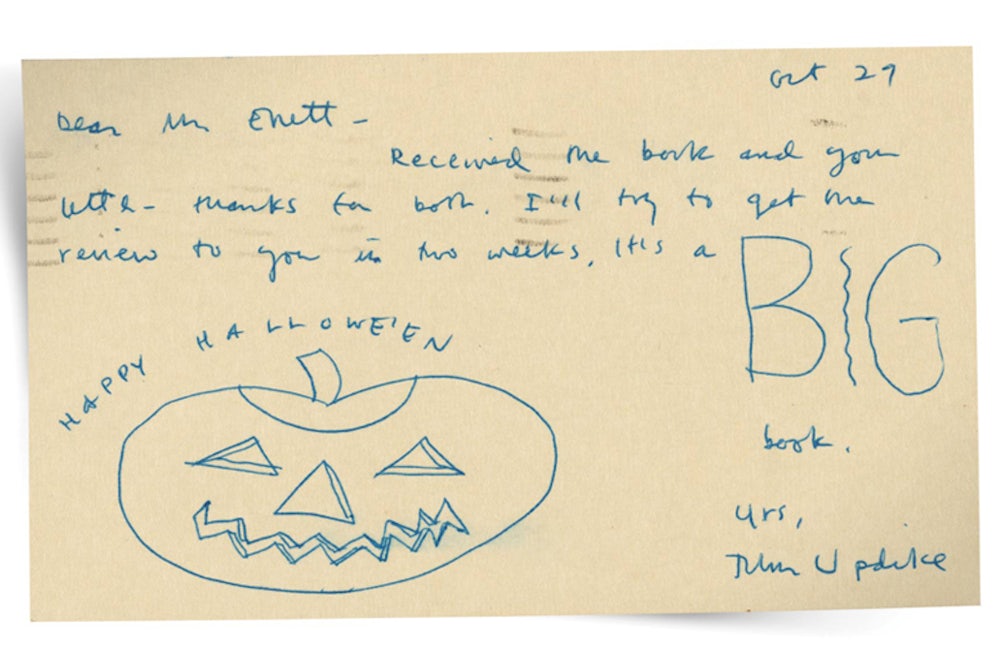 Oct 29
Dear Mr
Received the book and your
letter - thanks for both. I'll try to get the
review to you in two weeks. It's a BIG
HAPPY HALLOWE'EN
book.
Yrs,
John Updike